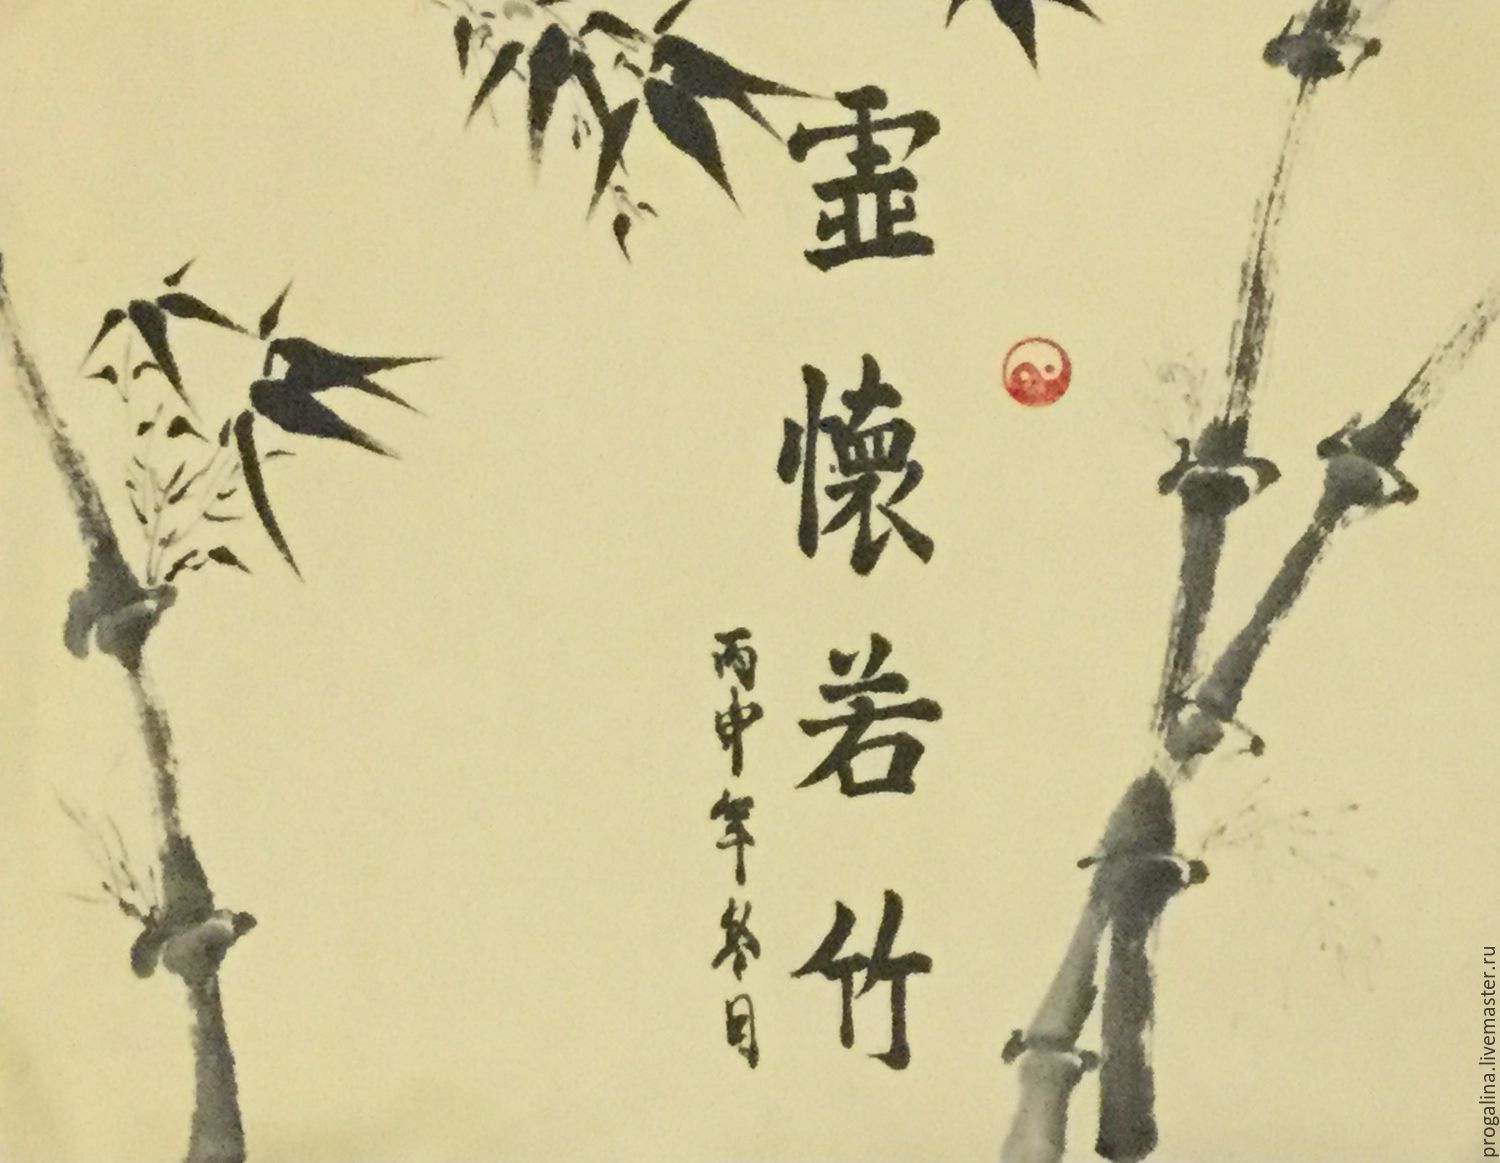 虛懷若竹
丙申年冬日
progalina.livemaster.ru